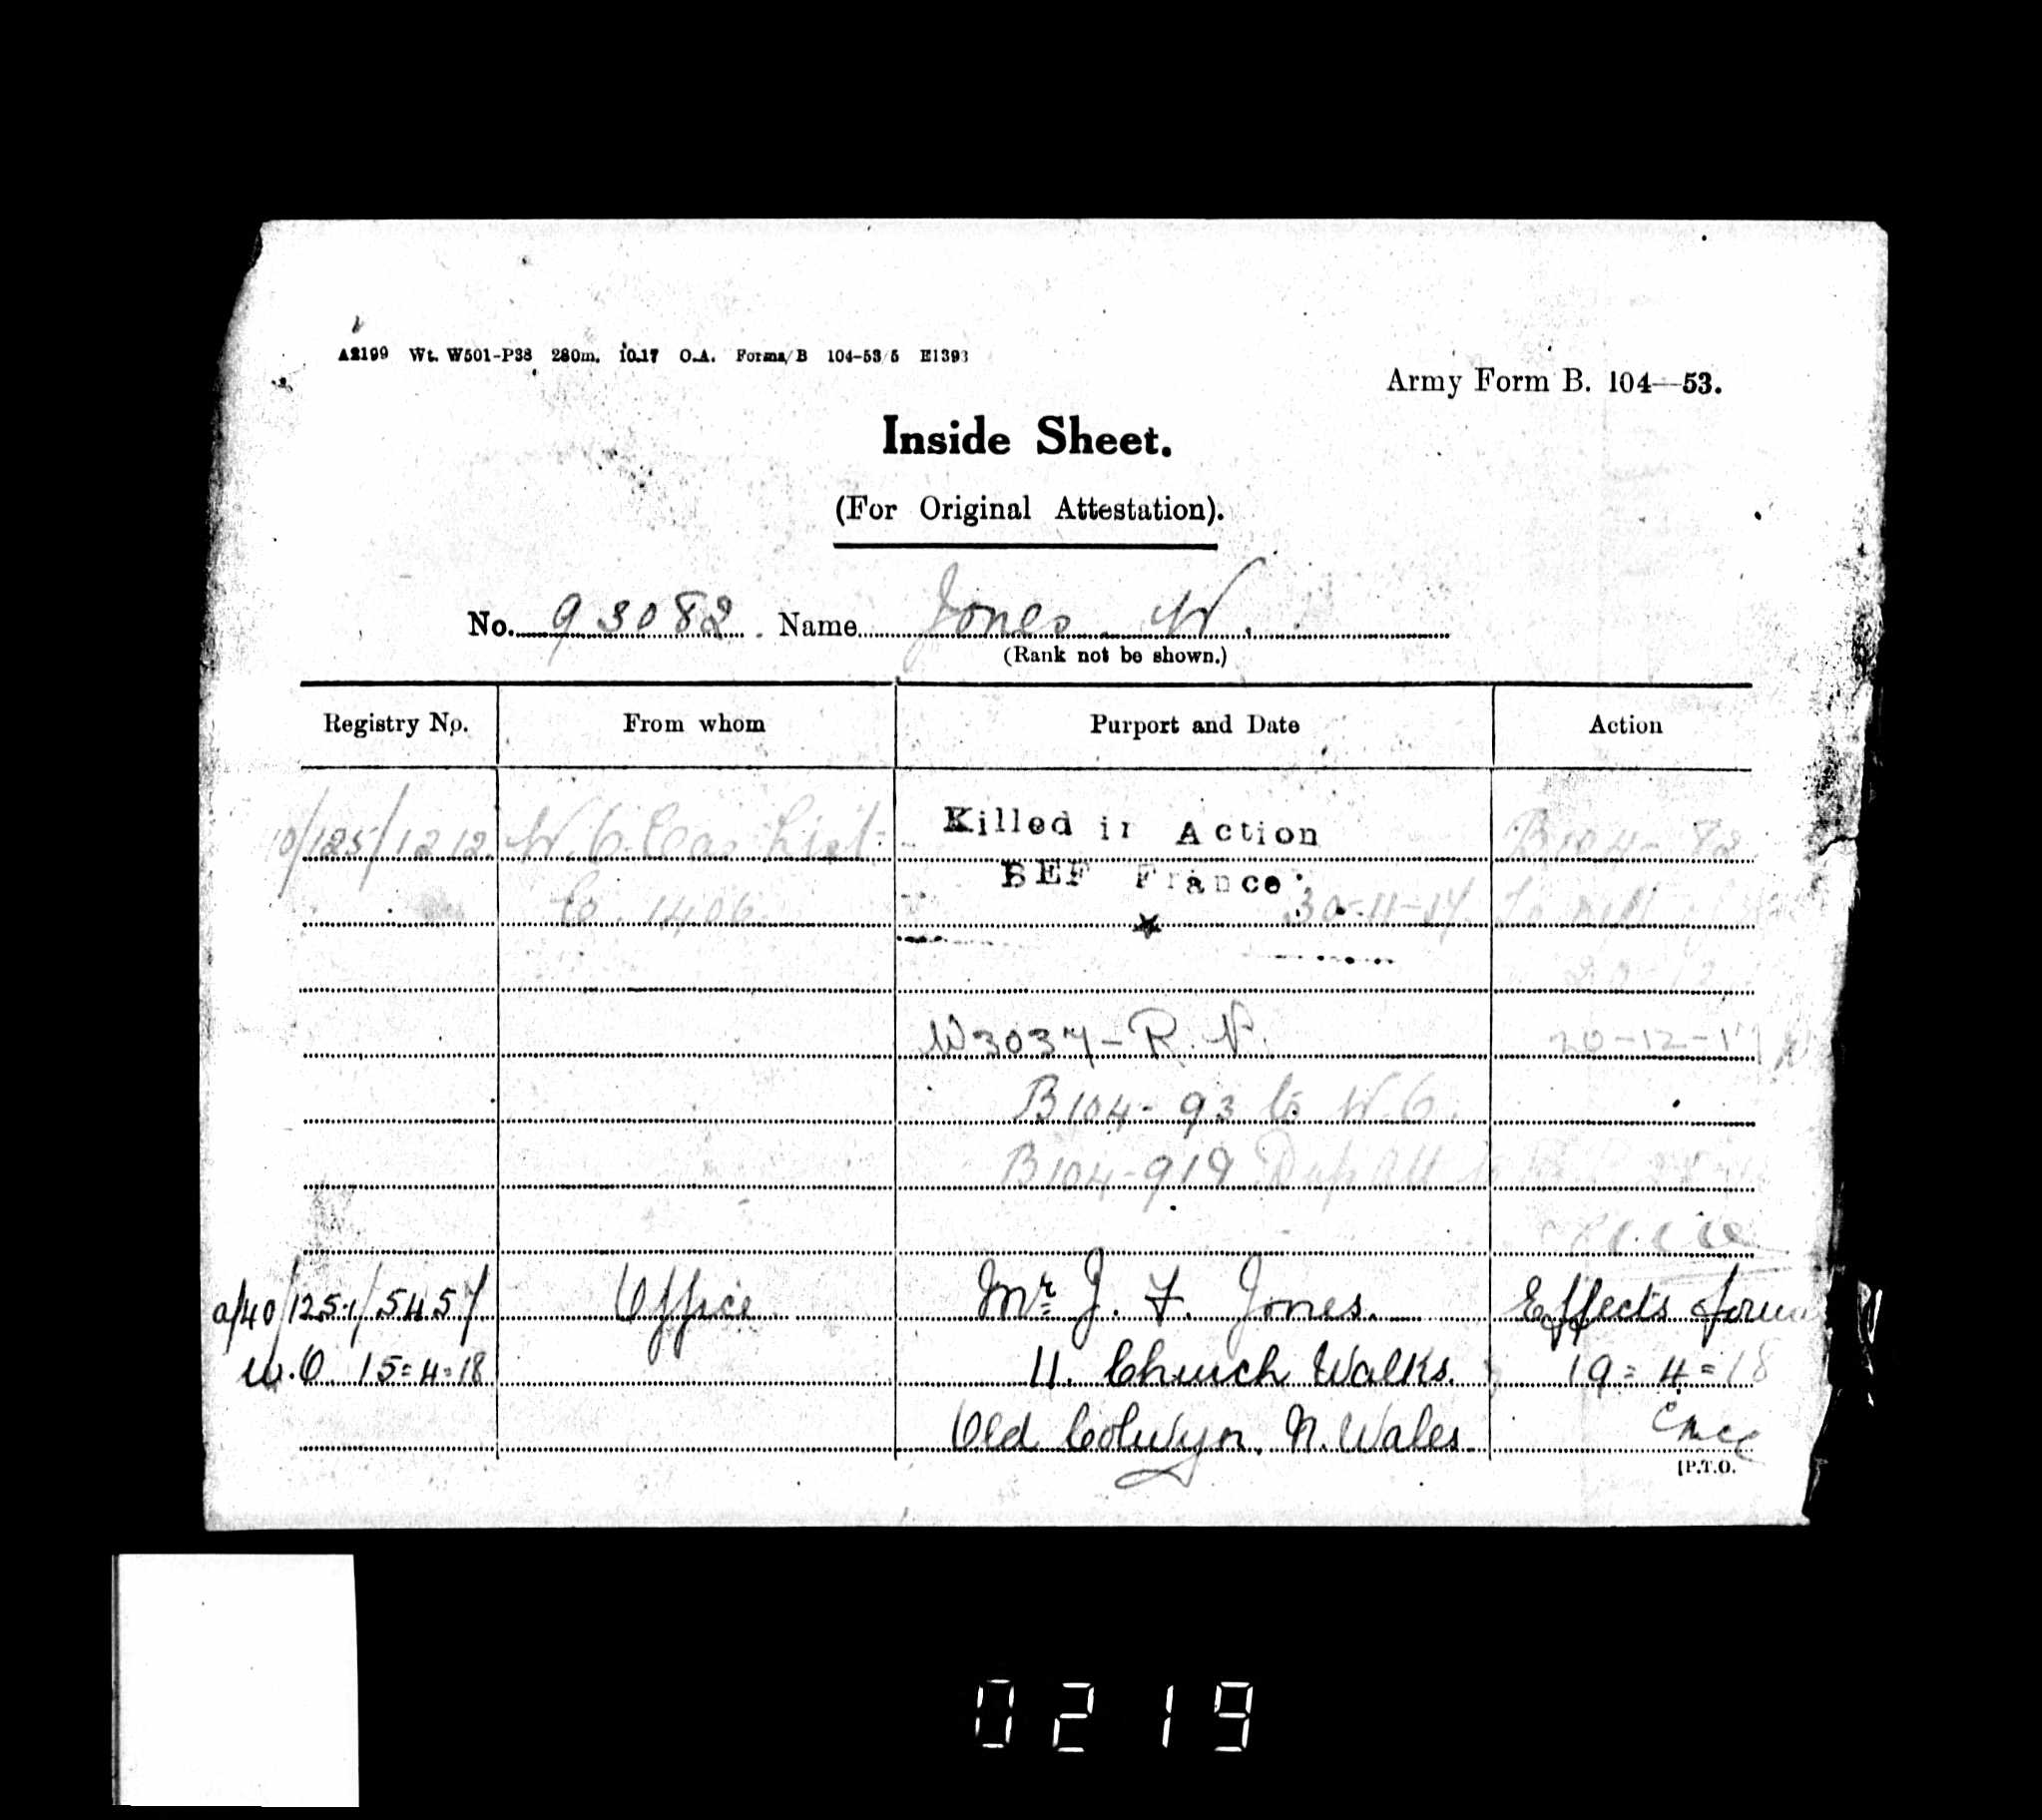 A2199 Wt. W501-P38 280m. 10.17 O.A. Forms/B 104-53/5 E1393
Army Form B. 104—53.
Inside Sheet.
(For Original Attestation).
No. 93082. Name Jones. W.
(Rank not be shown.)
Registry No. From whom Purport and Date Action
/125/1212. W.O. Cas List Killed in Action B104-82
1406 BEF France. 30-11-17
W3037-R.V. 20-12-17
B104-93 to W.O.
B104-919
a/40/125.1/5457 Office Mr J. F. Jones. Effects form
W.O 15=4=18 11. Church Walks. 19=4=18
Old Colwyn. N. Wales
[P.T.O.
0219